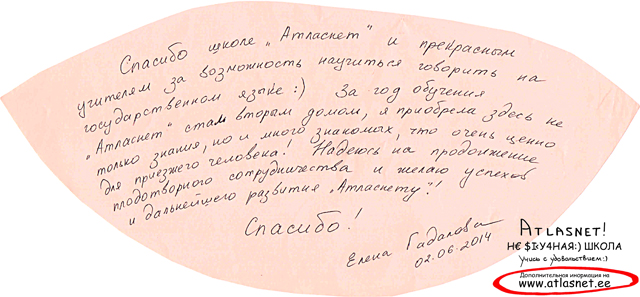 Спасибо школе „Атласнет" и прекрасным
учителям за возможность научиться говорить на
государственном языке :) За год обучения
„Атласнет" стал вторым домом, я приобрела здесь не
только знания, но и много знакомых, что очень ценно
для приезжего человека! Надеюсь на продолжение
плодотворного сотрудничества и желаю успехов
и дальнейшего развития „Атласнету"!
Спасибо!
Елена Гадалова
02.06.2014
ATLASNET!
НЄ $I:У4НАЯ:) ШКОЛА
Учись с удовольствием:)
Дополнительная информация на
www.atlasnet.ee